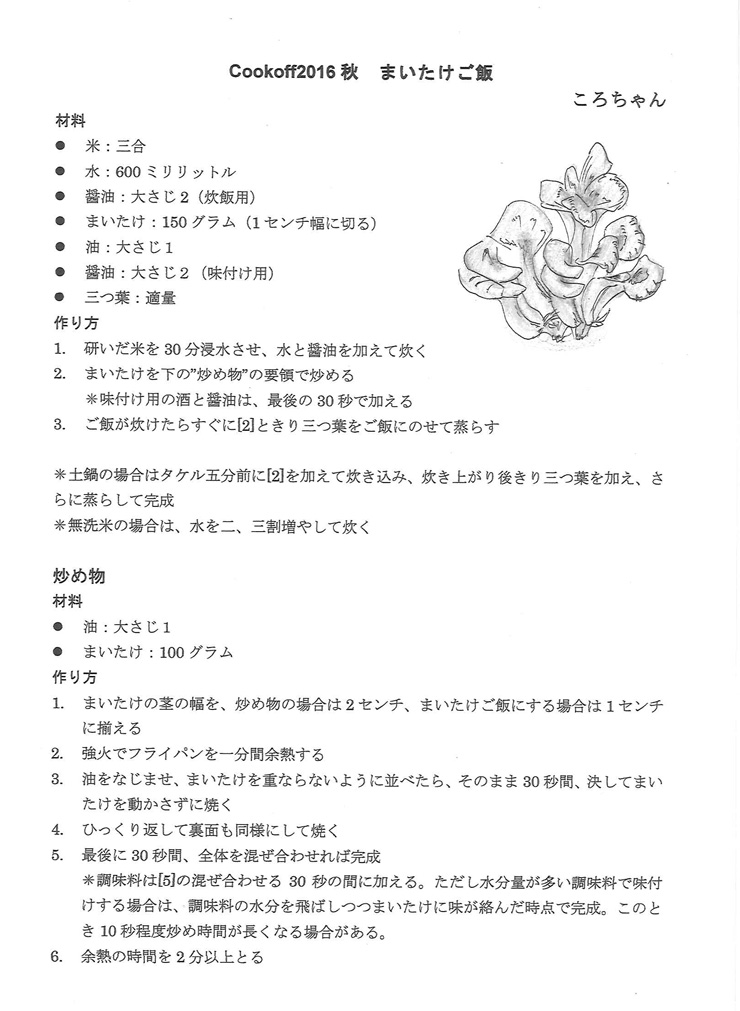 Cookoff2016 秋　まいたけご飯
ころちゃん
材料
● 米：三合
● 水：600 ミリリットル
● 醤油：大さじ 2（炊飯用）
● まいたけ：150 グラム（1 センチ幅に切る）
● 油：大さじ 1
● 醤油：大さじ 2（味付け用）
● 三つ葉：適量
作り方
1. 研いだ米を 30 分浸水させ、水と醤油を加えて炊く
2. まいたけを下の”炒め物”の要領で炒める
＊味付け用の酒と醤油は、最後の 30 秒で加える
3. ご飯が炊けたらすぐに[2]ときり三つ葉をご飯にのせて蒸らす
＊土鍋の場合はタケル五分前に[2]を加えて炊き込み、炊き上がり後きり三つ葉を加え、さ
らに蒸らして完成
＊無洗米の場合は、水を二、三割増やして炊く
炒め物
材料
● 油：大さじ 1
● まいたけ：100 グラム
作り方
1. まいたけの茎の幅を、炒め物の場合は 2 センチ、まいたけご飯にする場合は 1 センチ
に揃える
2. 強火でフライパンを一分間余熱する
3. 油をなじませ、まいたけを重ならないように並べたら、そのまま 30 秒間、決してまい
たけを動かさずに焼く
4. ひっくり返して裏面も同様にして焼く
5. 最後に 30 秒間、全体を混ぜ合わせれば完成
＊調味料は[5]の混ぜ合わせる 30 秒の間に加える。ただし水分量が多い調味料で味付
けする場合は、調味料の水分を飛ばしつつまいたけに味が絡んだ時点で完成。このと
き 10 秒程度炒め時間が長くなる場合がある。
6. 余熱の時間を 2 分以上とる